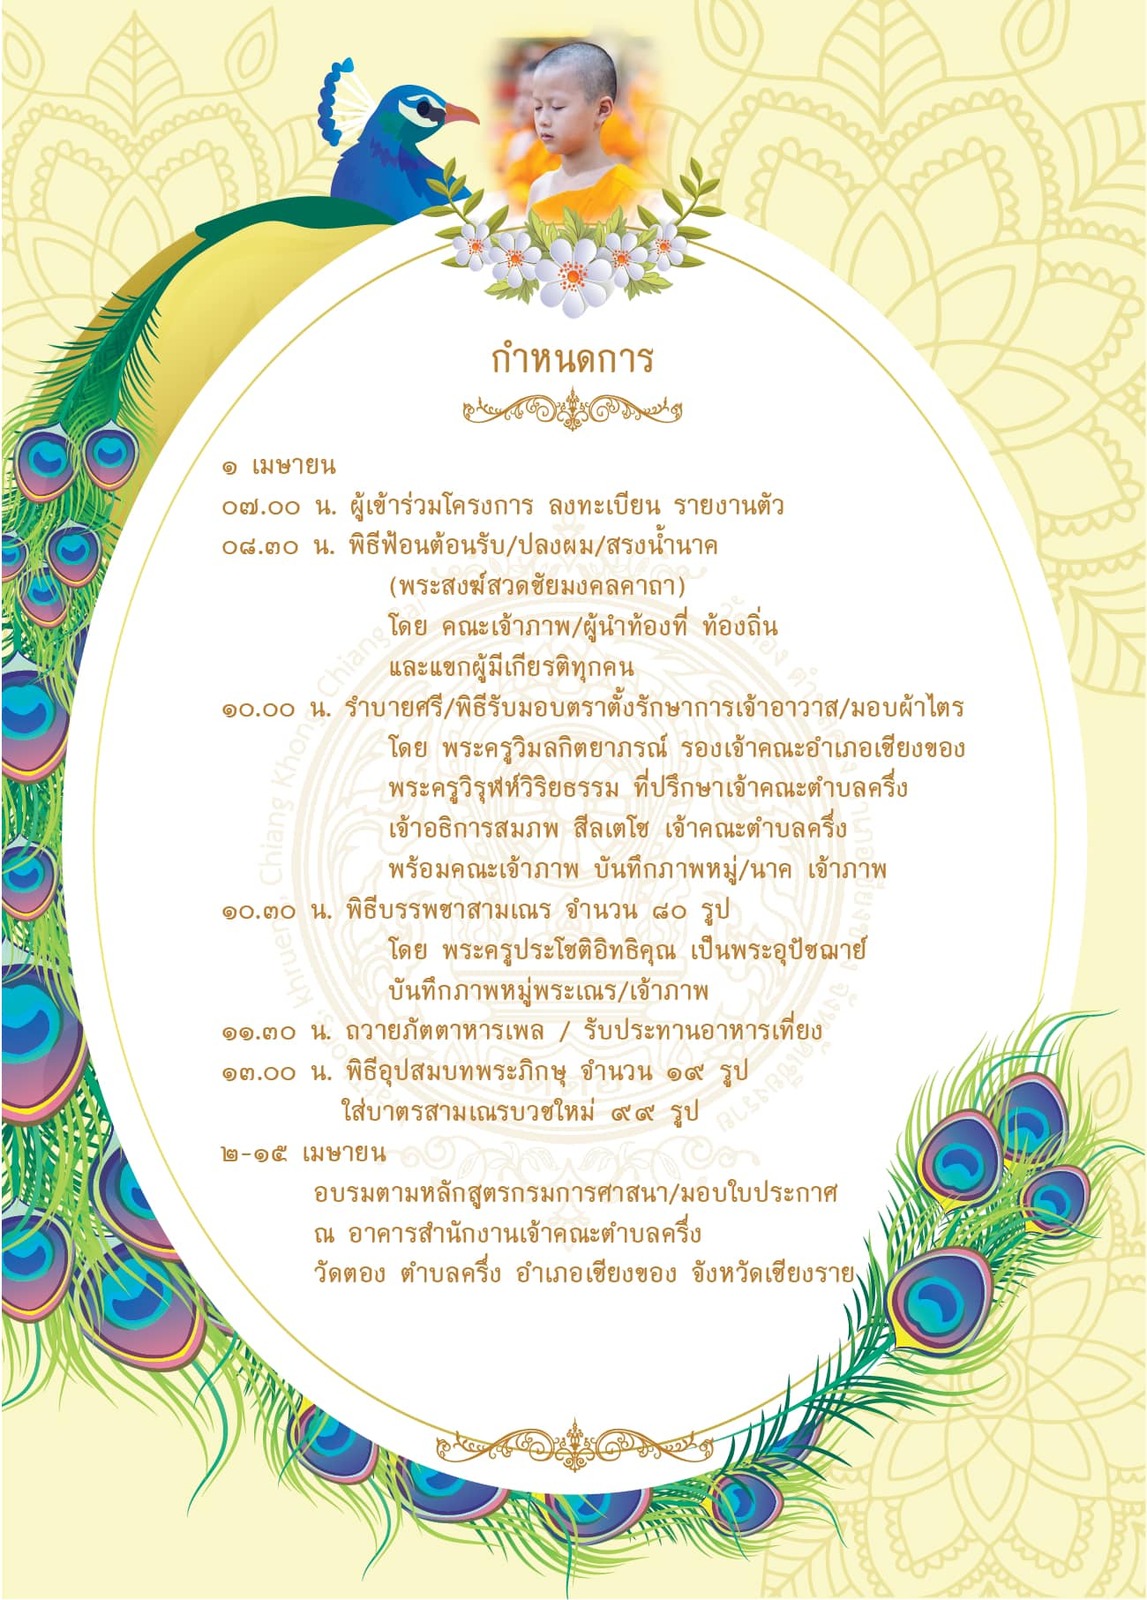 กำหนดการ
๑ เมษายน
๐๗.๐๐ น. ผู้เข้าร่วมโครงการ ลงทะเบียน รายงานตัว
๐๘.๓๐ น. พิธีฟ้อนต้อนรับ/ปลงผม/สรงน้ำนาค
(พระสงฆ์สวดชัยมงคลคาถา)
โดย คณะเจ้าภาพ/ผู้นำท้องที่ ท้องถิ่น
และแขกผู้มีเกียรติทุกคน
๑๐.๐๐ น. รำบายศรี/พิธีรับมอบตราตั้งรักษาการเจ้าอาวาส/มอบผ้าไตร
โดย พระครูวิมลกิตยาภรณ์ รองเจ้าคณะอำเภอเชียงของ
พระครูวิรุฬห์วิริยธรรม ที่ปรึกษาเจ้าคณะตำบลครึ่ง
เจ้าอธิการสมภพ สีลเตโช เจ้าคณะตำบลครึ่ง
พร้อมคณะเจ้าภาพ บันทึกภาพหมู่/นาค เจ้าภาพ
๑๐.๓๐ น. พิธีบรรพชาสามเณร จำนวน ๘๐ รูป
โดย พระครูประโชติอิทธิคุณ เป็นพระอุปัชฌาย์
บันทึกภาพหมู่พระเณร/เจ้าภาพ
๑๑.๓๐ น. ถวายภัตตาหารเพล / รับประทานอาหารเที่ยง
๑๓.๐๐ น. พิธีอุปสมบทพระภิกษุ จำนวน ๑๙ รูป
ใส่บาตรสามเณรบวชใหม่ ๙๙ รูป
๒-๑๕ เมษายน
อบรมตามหลักสูตรกรมการศาสนา/มอบใบประกาศ
ณ อาคารสำนักงานเจ้าคณะตำบลครึ่ง
วัดตอง ตำบลครึ่ง อำเภอเชียงของ จังหวัดเชียงราย